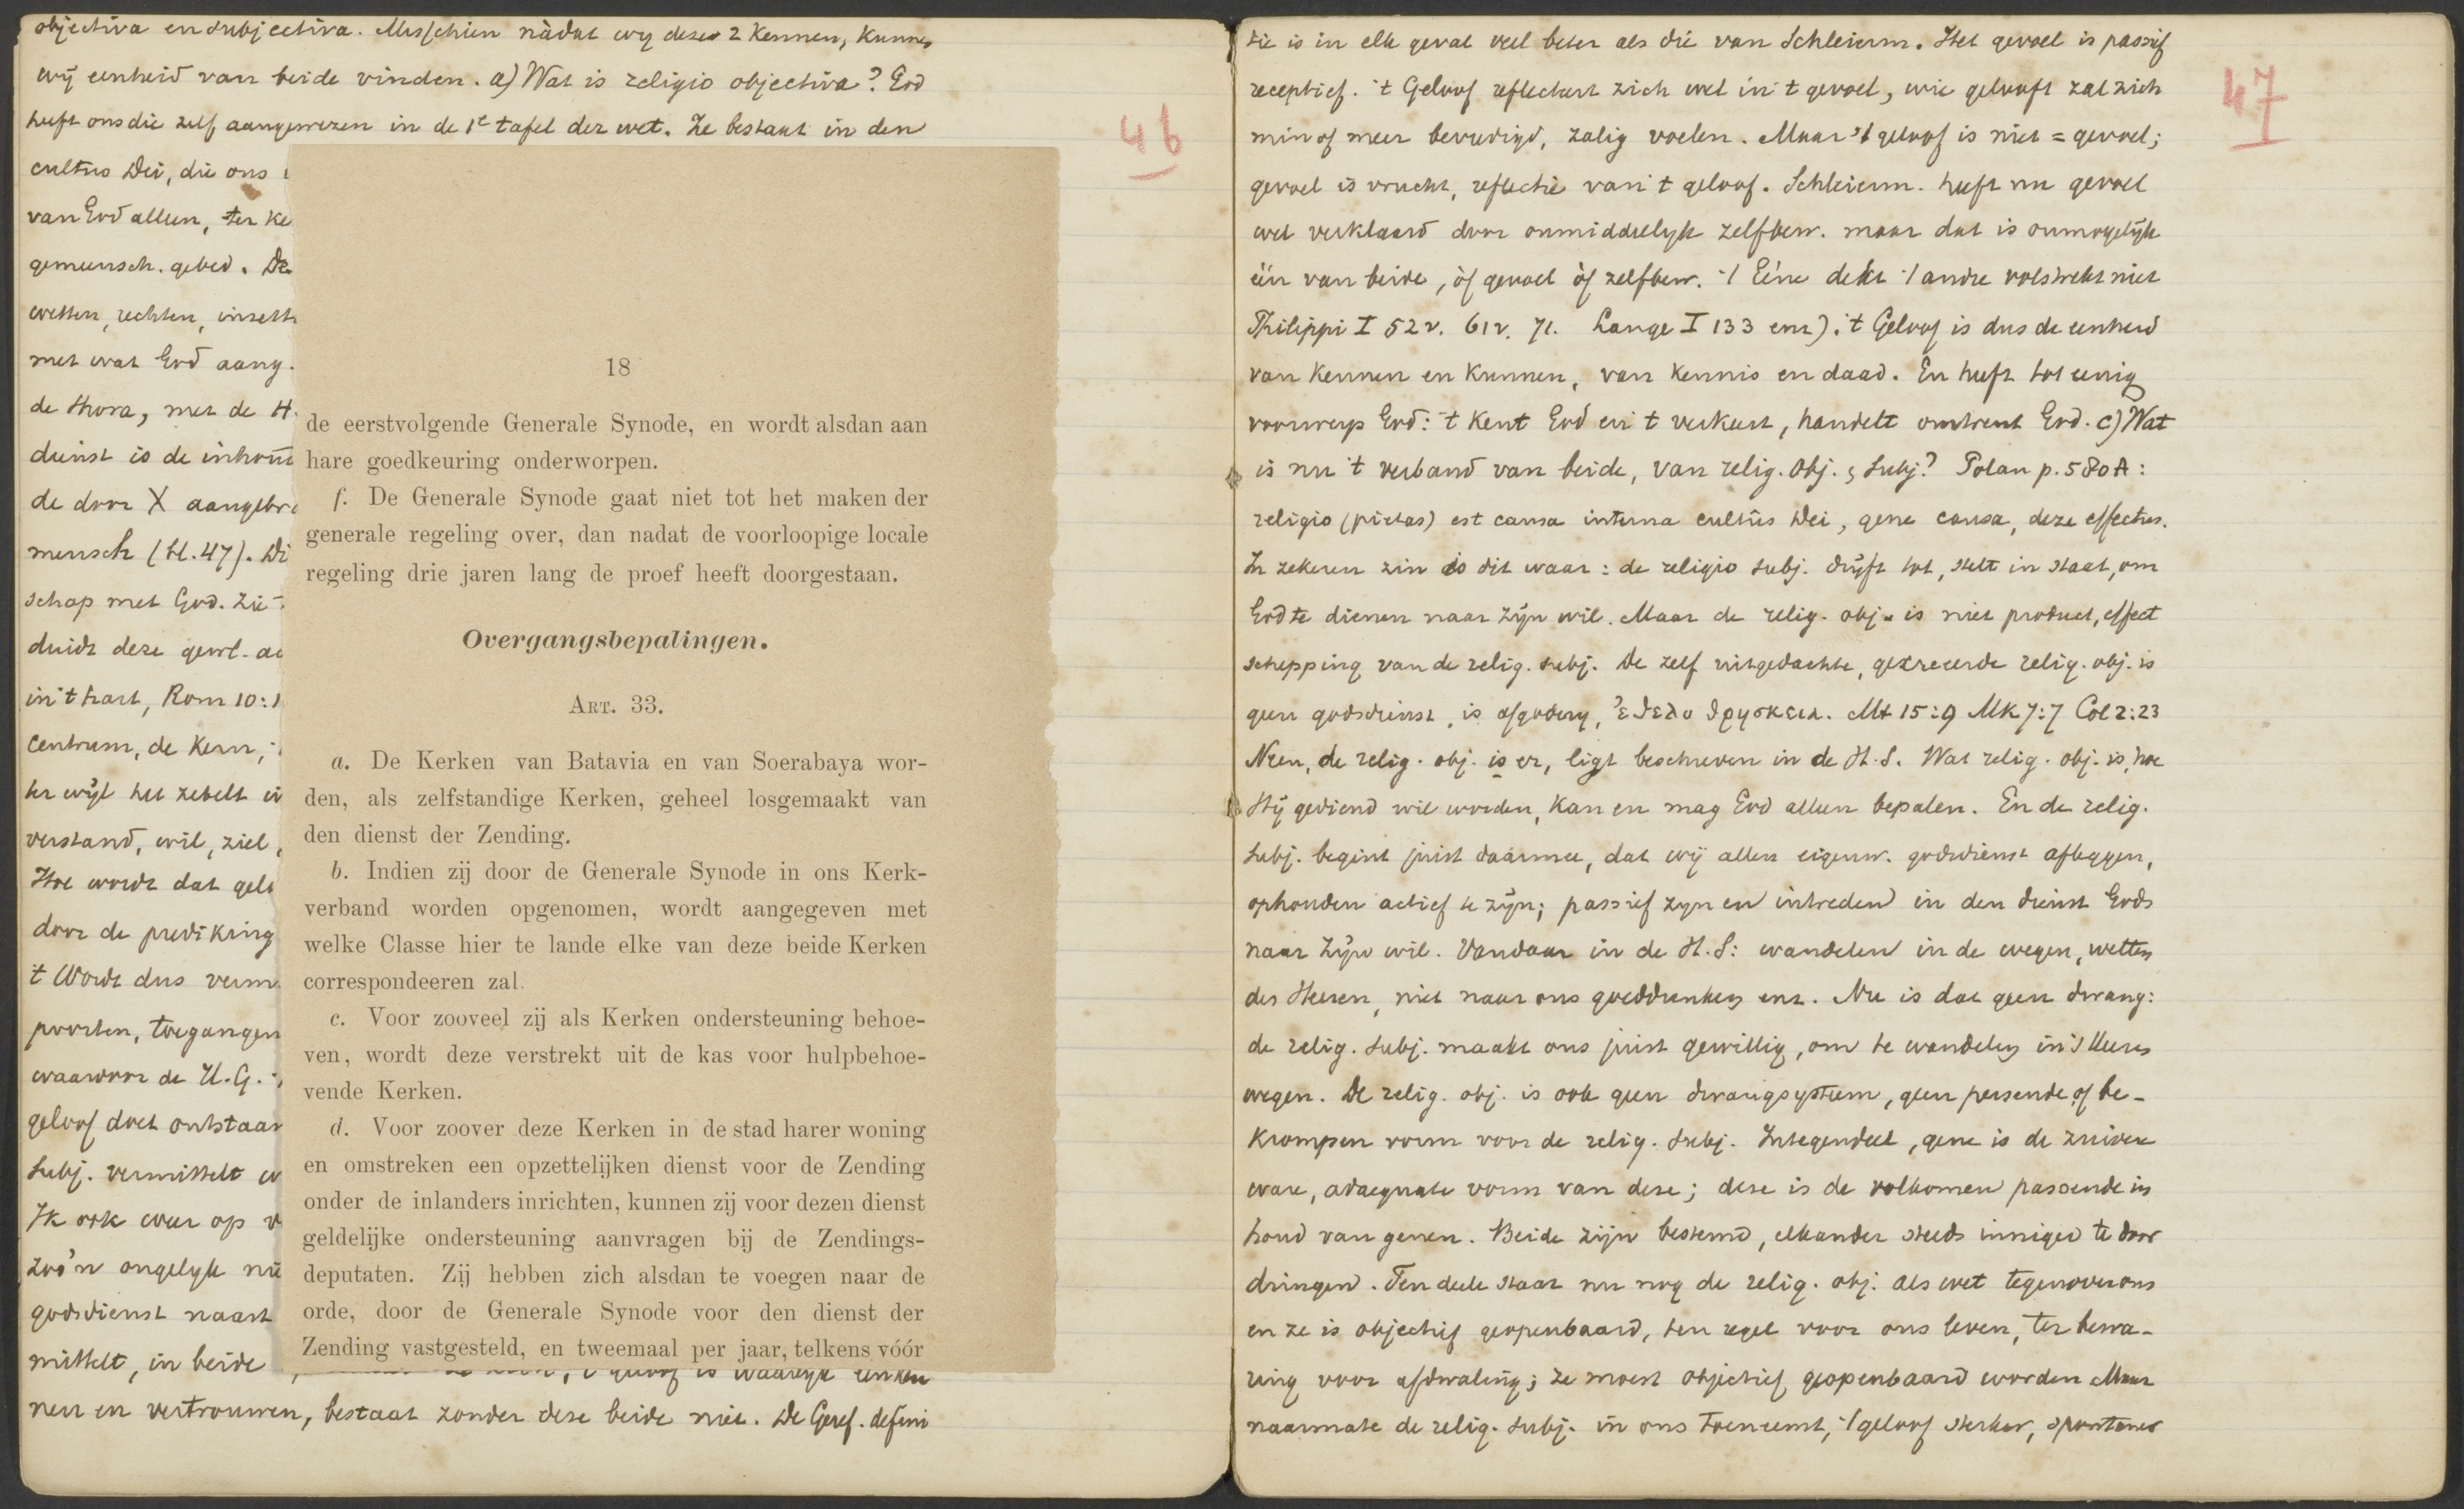 objectiva en subjectiva. Misschien nàdat wy deze 2 kennen, kunnen
wij eenheid van beide vinden. a) Wat is religio objectiva? God
heeft ons die zelf aangewezen in de 1e tafel der wet. Ze bestaat in den
cultus Dei, die ons
van God alleen, ter ke
gemeensch. gebed. De
wetten, rechten, inzett
met wat God aang.
de thora, met de H.
dienst is de inhoud
de door X aangebr
mensch (H.47). Di
schap met God. Zie
duidt deze gewl. a
in 't hart, Rom 10:1
centrum, de kern,
terwijl het zetelt i
verstand, wil, ziel,
Hoe wordt dat gel
door de prediking
't Woord dus verm.
poorten, toegangen
waardoor de H.G.
geloof doet ontstaan
subj. vermittelt
Ik ook weer op
zoo'n ongelyk
godsdienst naast
mittelt, in beide
46
18
de eerstvolgende Generale Synode, en wordt alsdan aan
hare goedkeuring onderworpen.
f. De Generale Synode gaat niet tot het maken der
generale regeling over, dan nadat de voorloopige locale
regeling drie jaren lang de proef heeft doorgestaan.
Overgangsbepalingen.
Art. 33.
a. De Kerken van Batavia en van Soerabaya wor-
den, als zelfstandige Kerken, geheel losgemaakt van
den dienst der Zending.
b. Indien zij door de Generale Synode in ons Kerk-
verband worden opgenomen, wordt aangegeven met
welke Classe hier te lande elke van deze beide Kerken
correspondeeren zal.
c. Voor zooveel zij als Kerken ondersteuning behoe-
ven, wordt deze verstrekt uit de kas voor hulpbehoe-
vende Kerken.
d. Voor zoover deze Kerken in de stad harer woning
en omstreken een opzettelijken dienst voor de Zending
onder de inlanders inrichten, kunnen zij voor dezen dienst
geldelijke ondersteuning aanvragen bij de Zendings-
deputaten. Zij hebben zich alsdan te voegen naar de
orde, door de Generale Synode voor den dienst der
Zending vastgesteld, en tweemaal per jaar, telkens vóór
't geloof is waarlyk een ken
nen en vertrouwen, bestaat zonder deze beide niet. De Geref. defini
47
tie is in elk geval veel beter als die van Schleierm. Het gevoel is passief
receptief. 't Geloof reflecteert zich wel in 't gevoel, wie gelooft zal zich
min of meer bevredigd, zalig voelen. Maar 't geloof is niet = gevoel;
gevoel is vrucht, reflectie van 't geloof. Schleierm. heeft nu gevoel
wel verklaard door onmiddelyk zelfbew. maar dat is onmogelijk
één van beide, òf gevoel òf zelfbew. 't Eéne dekt 't andre volstrekt niet
Philippi I 52v. 61v. 71. Lange I 133 enz). 't Geloof is dus de eenheid
van kennen en kunnen, van kennis en daad. En heeft tot eenig
voorwerp God: 't kent God en 't verkeert, handelt omtrent God. c) Wat
is nu 't verband van beide, van relig. obj. & subj? Polan p. 580A:
religio (pietas) est causa interna cultûs Dei, gene causa, deze effectus.
In zekeren zin is dit waar: de religio subj. drijft tot, stelt in staat, om
God te dienen naar zijn wil. Maar de relig. obj. is niet product, effect
schepping van de relig. subj. De zelf uitgedachte, gecreeerde relig. obj. is
geen godsdienst, is afgodery, ἐθελοθρησκεια. Mt 15:9 Mk 7:7 Col 2:23
Neen, de relig. obj. is er, ligt beschreven in de H.S. Wat relig. obj. is, hoe
Hij gediend wil worden, kan en mag God alleen bepalen. En de relig.
subj. begint juist daarmee, dat wij allen eigenw. godsdienst afleggen,
ophouden actief te zijn; passief zyn en intreden in den dienst Gods
naar Zijn wil. Vandaar in de H.S: wandelen in de wegen, wetten
des Heeren, niet naar ons goeddunken enz. Nu is dat geen dwang:
de relig. subj. maakt ons juist gewillig, om te wandelen in 's Heeren
wegen. De relig. obj. is ook geen dwangsysteem, geen persende of be-
krompen vorm voor de relig. subj. Integendeel, gene is de zuivere
ware, adaequate vorm van deze; deze is de volkomen passende in
houd van genen. Beide zijn bestemd, elkander steeds inniger te door
dringen. Ten deele staat nu nog de relig. obj. als wet tegenover ons
en ze is objectief geopenbaard, ten regel voor ons leven, ter bewa-
ring voor afdwaling; ze moest objectief geopenbaard worden Maar
naarmate de relig. subj. in ons toeneemt, 't geloof sterker, spontaner